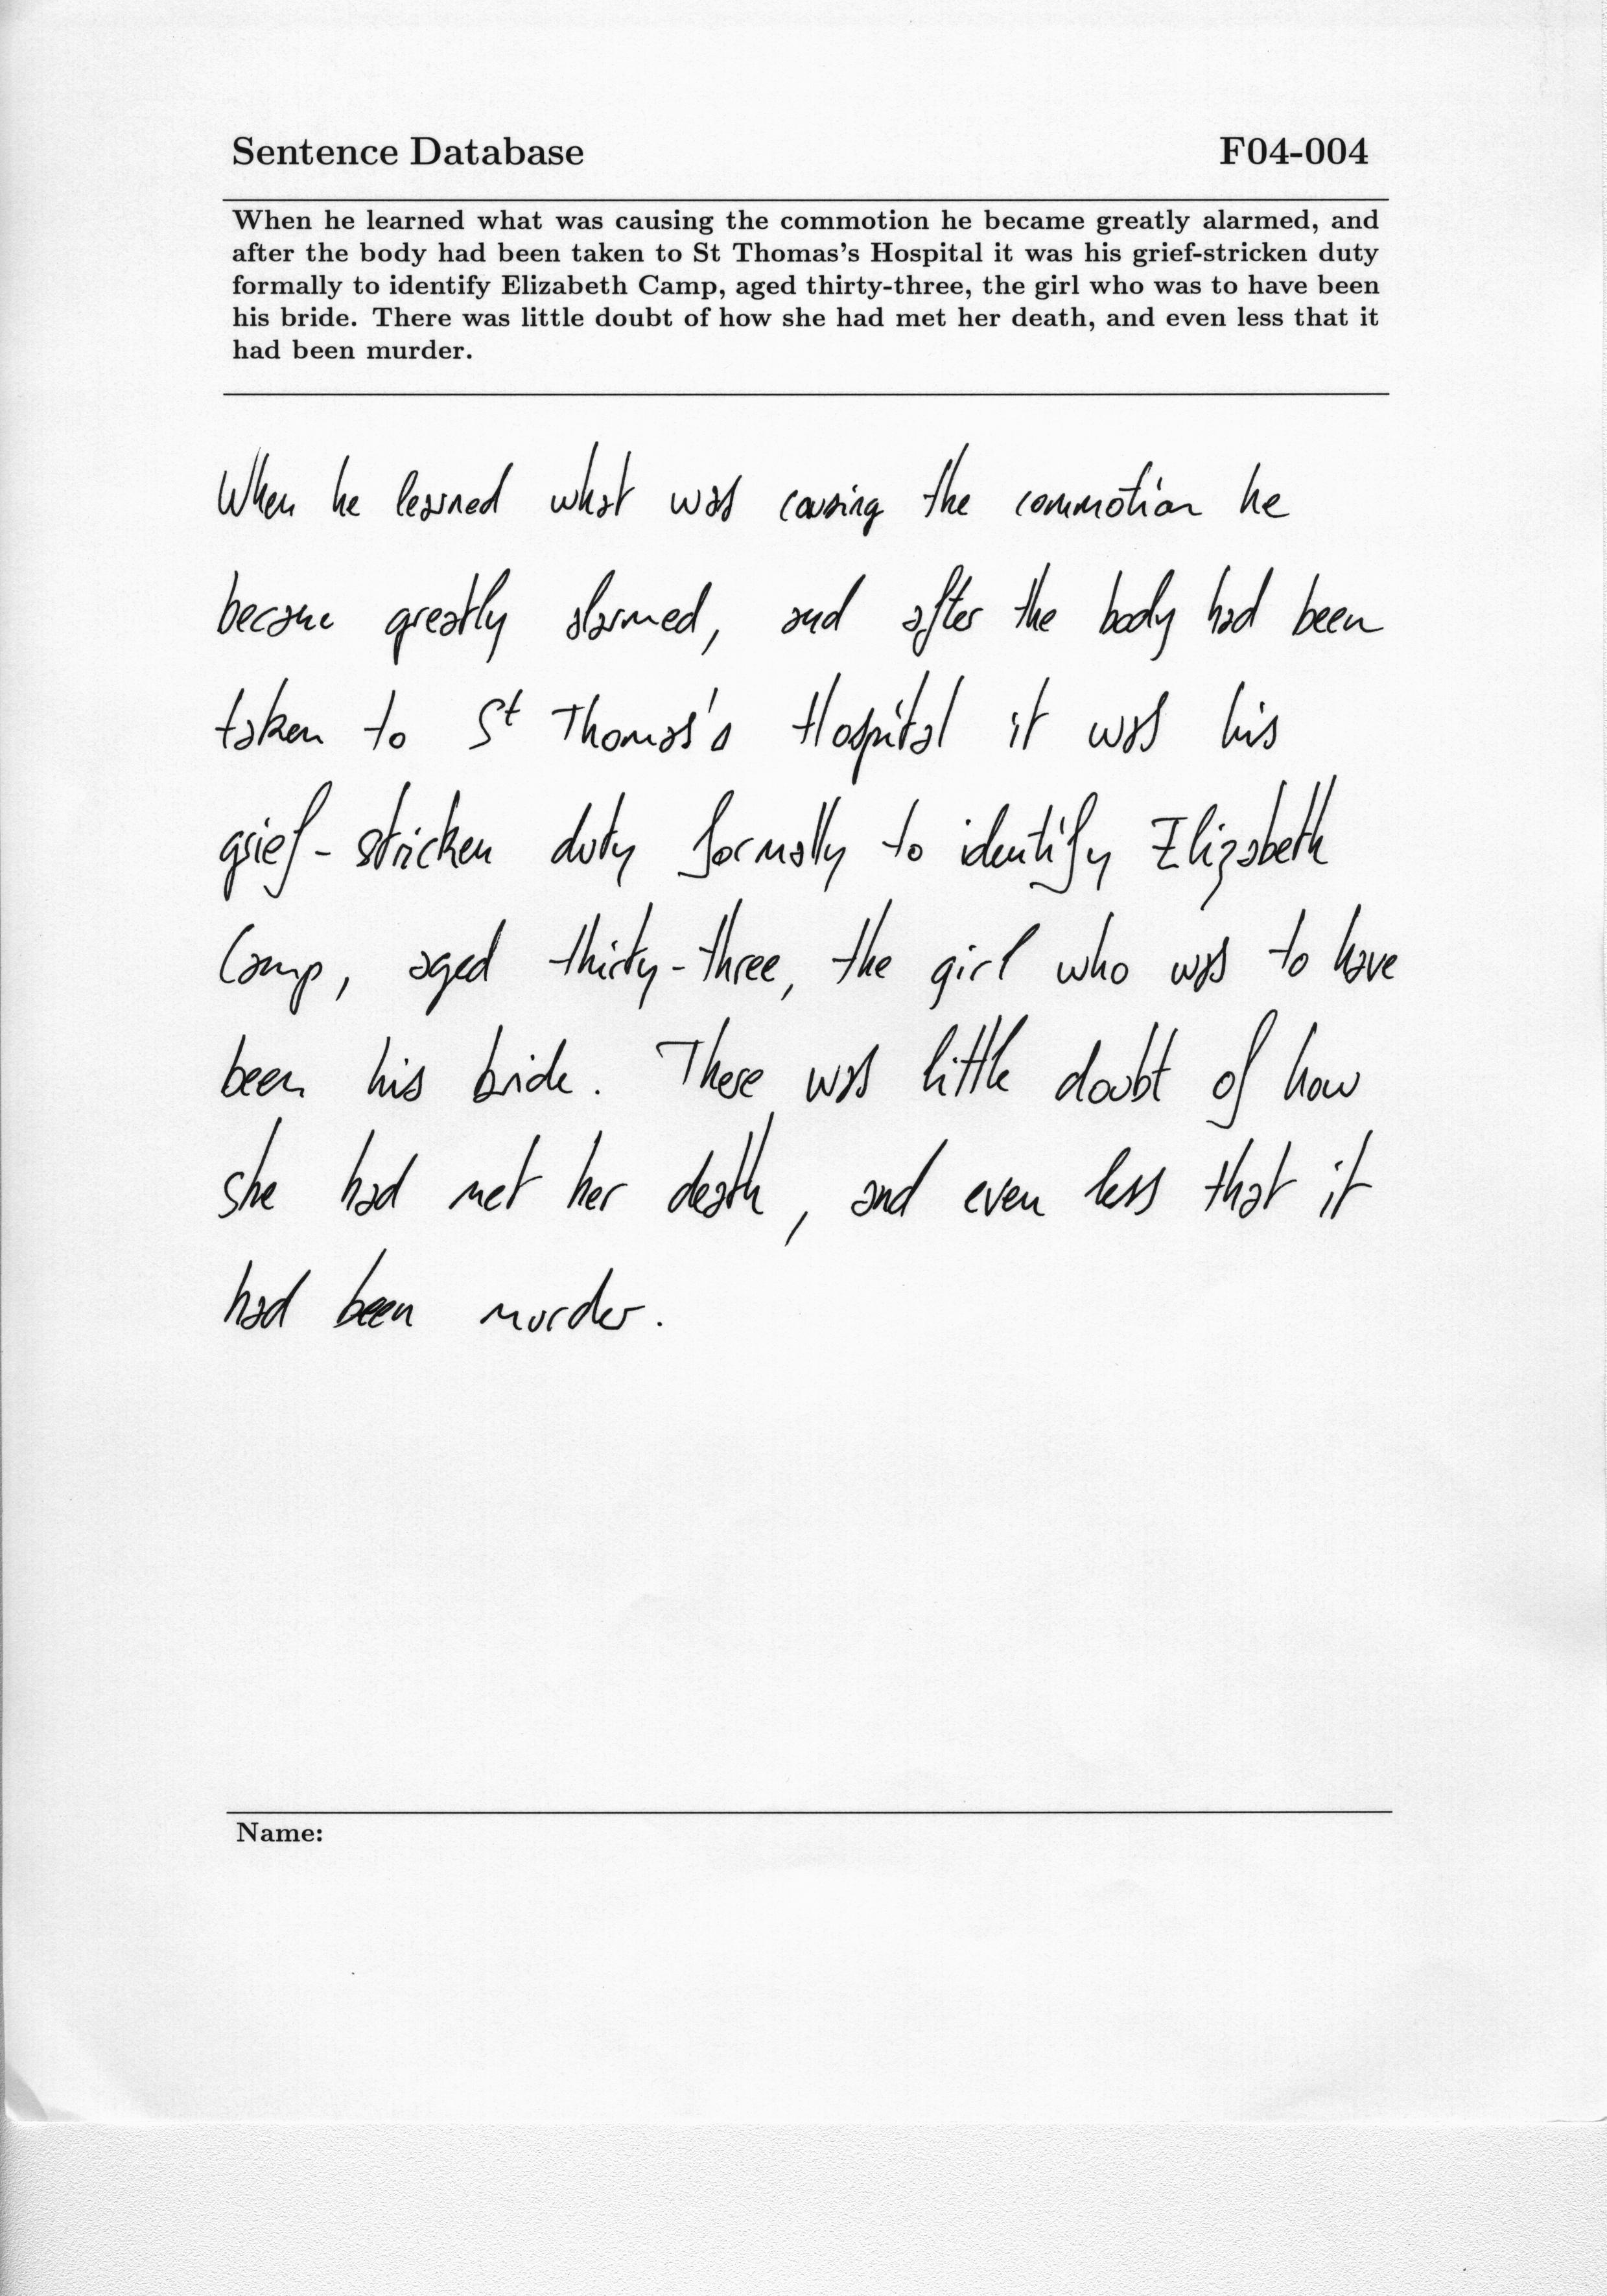 Sentence Database F04-004
When he learned what was causing the commotion he became greatly alarmed, and
after the body had been taken to St Thomas's Hospital it was his grief-stricken duty
formally to identify Elizabeth Camp, aged thirty-three, the girl who was to have been
his bride. There was little doubt of how she had met her death, and even less that it
had been murder.
When he learned what was causing the commotion he
became greatly alarmed, and after the body had been
taken to St Thomas's Hospital it was his
grief-stricken duty formally to identify Elizabeth
Camp, aged thirty-three, the girl who was to have
been his bride. There was little doubt of how
she had met her death, and even less that it
had been murder.
Name: